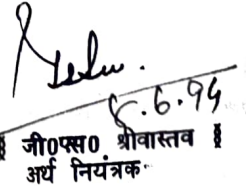 8.6.94
जी0एस0 श्रीवास्तव
अर्थ नियंत्रक